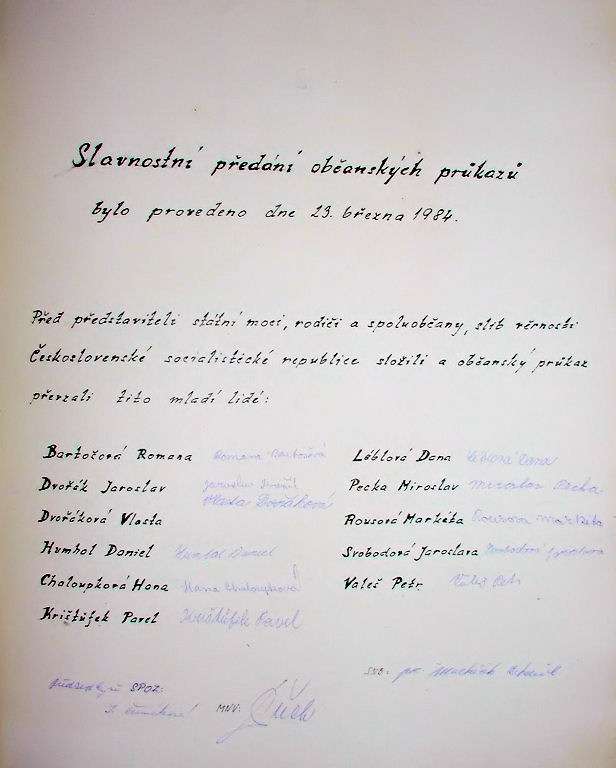 Slavnostní předání občanských průkazů
bylo provedeno dne 29. března 1984.
Před představiteli státní moci, rodiči a spoluobčany, slib věrnosti
Československé socialistické republice složili a občanský průkaz
převzali tito mladí lidé:
Bartošová Romana Romana Bartošová
Dvořák Jaroslav Jaroslav Dvořák
Vlasta Dvořáková
Dvořáková Vlasta
Humhal Daniel Humhal Daniel
Chaloupková Hana Hana Chaloupková
Krištúfek Pavel Krištúfek Pavel
Léblová Dana Léblová Dana
Pecka Miroslav Miroslav Pecka
Rousová Markéta Rousová Markéta
Svobodová Jaroslava Svobodová Jaroslava
Valeš Petr Valeš Petr
SNB:
SPOZ:
MNV: